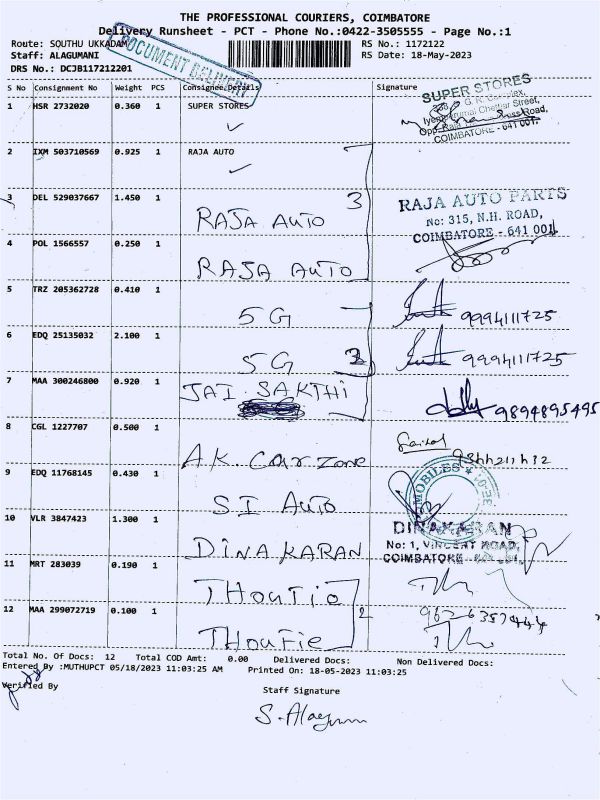 THE PROFESSIONAL COURIERS, COIMBATORE
Delivery Runsheet - PCT - Phone No.:0422-3505555 - Page No.:1
Route: SOUTHU UKKADAM RS No.: 1172122
Staff: ALAGUMANI RS Date: 18-May-2023
DRS No.: DCJB117212201
DOCUMENT DELIVERY
S No Consignment No Weight PCS Consignee Details Signature
1 HSR 2732020 0.360 1 SUPER STORES
SUPER STORES
G. N. Complex,
Chettiar Street,
Cross Road,
COIMBATORE - 641 001.
2 IXM 503710569 0.925 1 RAJA AUTO
3 DEL 529037667 1.450 1 RAJA AUTO 3
RAJA AUTO PARTS
No: 315, N.H. ROAD,
COIMBATORE - 641 001.
4 POL 1566557 0.250 1 RAJA AUTO
5 TRZ 205362728 0.410 1 5G 9994111725
6 EDQ 25135032 2.100 1 5G 9994111725
7 MAA 300246800 0.920 1 JAI SAKTHI 9894895495
8 CGL 1227707 0.500 1 A.K. Car Zone
9 EDQ 11768145 0.430 1 SI Auto
MOBILES
10 VLR 3847423 1.300 1 DINAKARAN
DINAKARAN
No: 1, VINCENT ROAD,
COIMBATORE
11 MRT 283039 0.190 1 THOUFIQ 2
12 MAA 299072719 0.100 1 THOUFie
Total No. Of Docs: 12 Total COD Amt: 0.00 Delivered Docs: Non Delivered Docs:
Entered By :MUTHUPCT 05/18/2023 11:03:25 AM Printed On: 18-05-2023 11:03:25
Verified By
Staff Signature
S. Alagumani